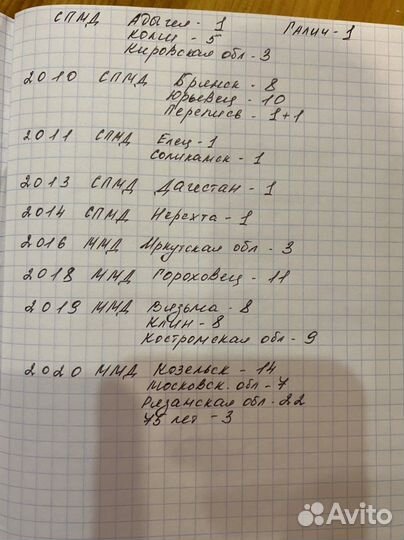 СПМД Адыгея - 1 Галич - 1
Коми - 5
Кировская обл - 3
2010 СПМД Брянск - 8
Юрьевец - 10
Перепись - 1+1
2011 СПМД Елец - 1
Соликамск - 1
2013 СПМД Дагестан - 1
2014 СПМД Нерехта - 1
2016 ММД Иркутская обл - 3
2018 ММД Гороховец - 11
2019 ММД Вязьма - 8
Клин - 8
Костромская обл - 9
2020 ММД Козельск - 14
Московск. обл - 7
Рязанская обл - 22
75 лет - 3
Avito